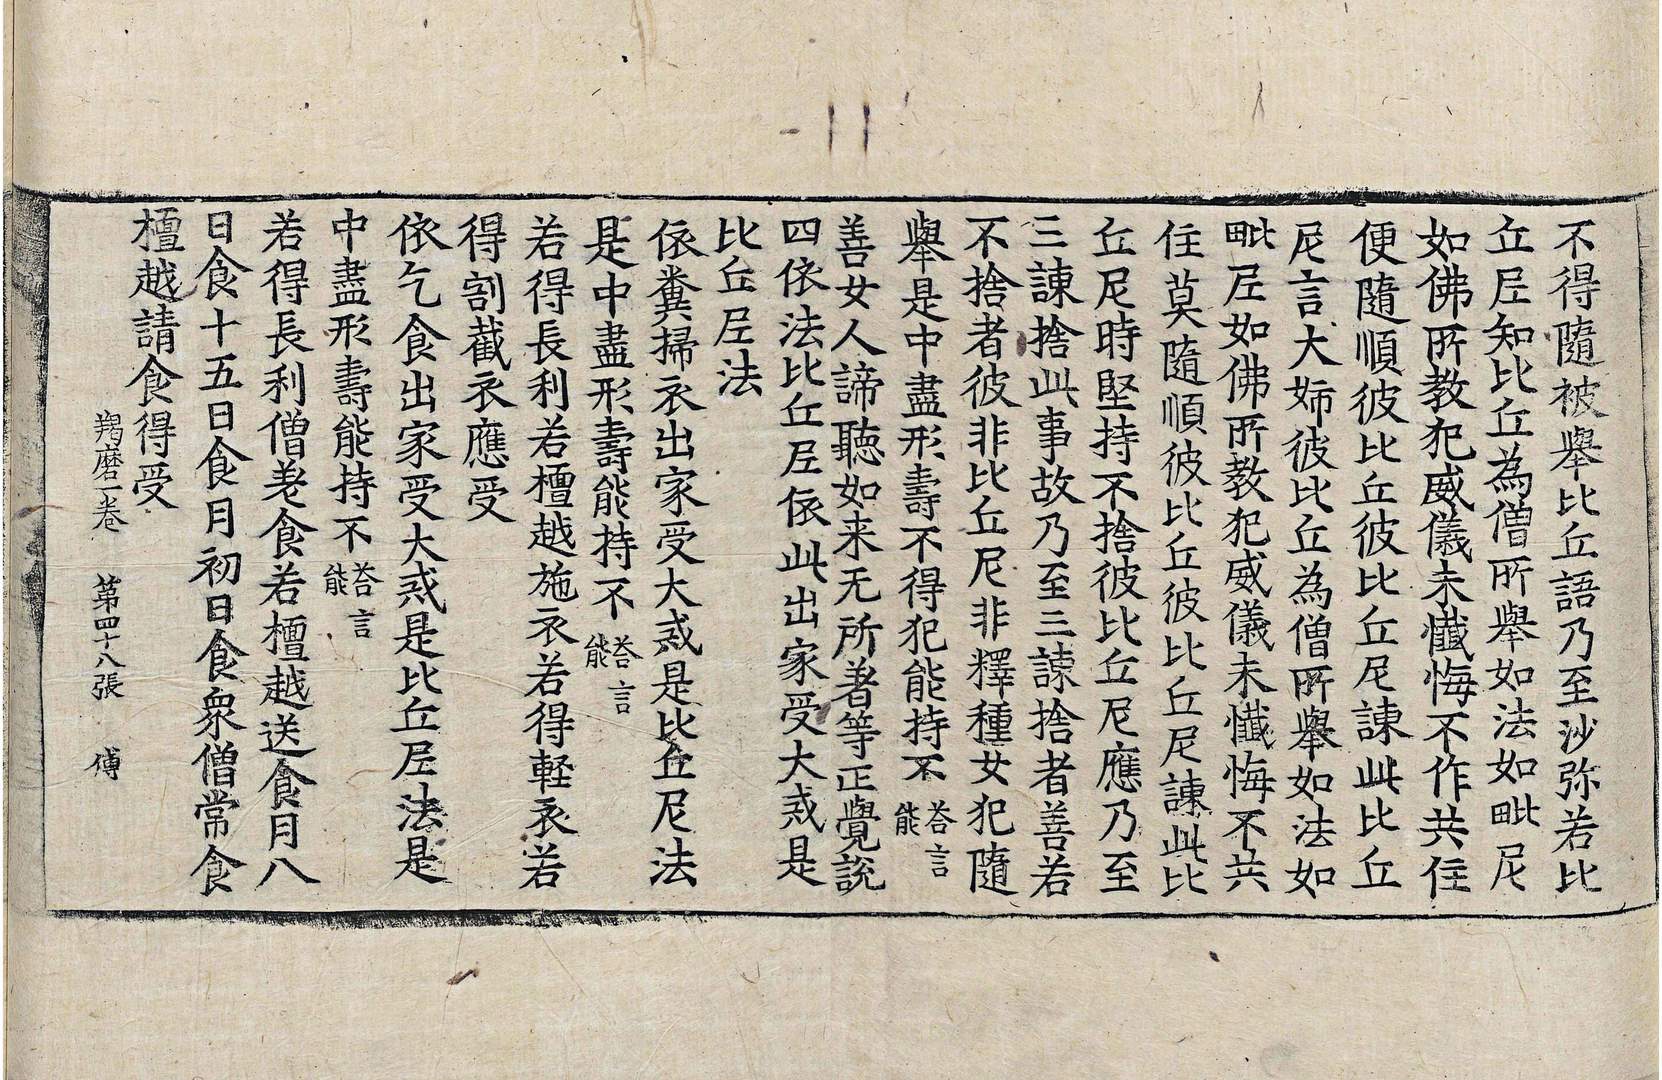 不得隨被舉比丘語乃至沙弥若比
丘尼知比丘為僧所舉如法如毗尼
如佛所教犯威儀未懺悔不作共住
便隨順彼比丘彼比丘尼諫此比丘
尼言大姉彼比丘為僧所舉如法如
毗尼如佛所教犯威儀未懺悔不共
住莫隨順彼比丘彼比丘尼諫此比
丘尼時堅持不捨彼比丘尼應乃至
三諫捨此事故乃至三諫捨者善若
不捨者彼非比丘尼非釋種女犯隨
舉是中盡形壽不得犯能持不荅言能
善女人諦聽如来无所著等正覺說
四依法比丘尼依此出家受大戒是
比丘尼法
依糞掃衣出家受大戒是比丘尼法
是中盡形壽能持不荅言能
若得長利若檀越施衣若得軽衣若
得割截衣應受
依乞食出家受大戒是比丘尼法是
中盡形壽能持不荅言能
若得長利僧差食若檀越送食月八
日食十五日食月初日食衆僧常食
檀越請食得受
羯磨一卷 第四十八張 傅